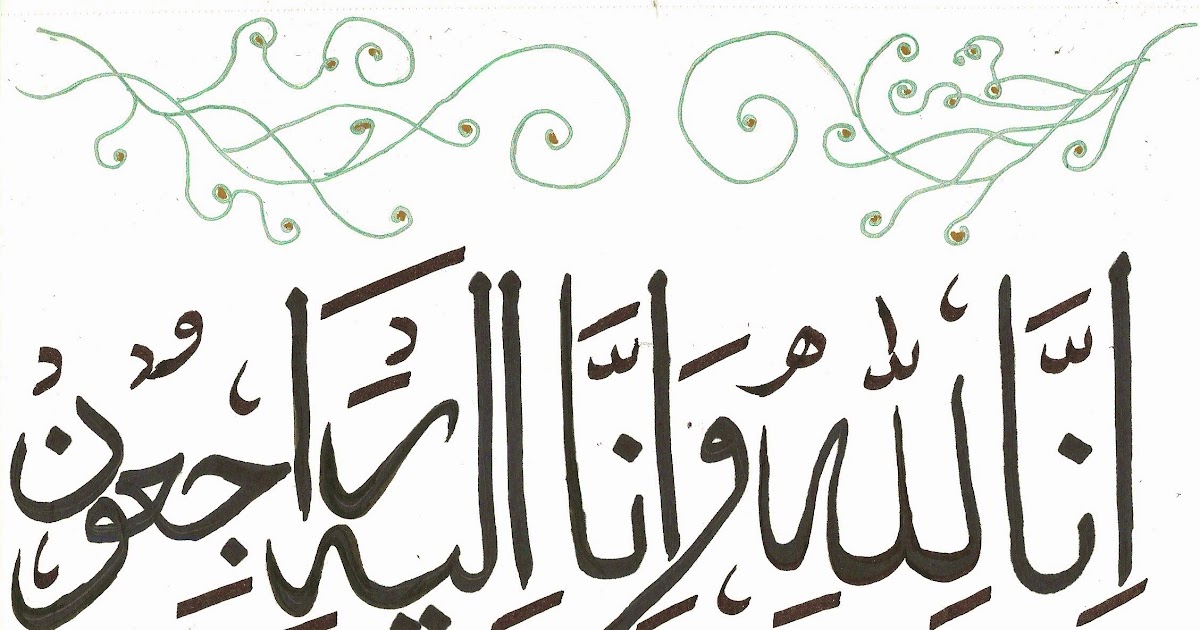 إِنَّا لِلّٰهِ وَإِنَّا إِلَيْهِ رَاجِعُوْنَ